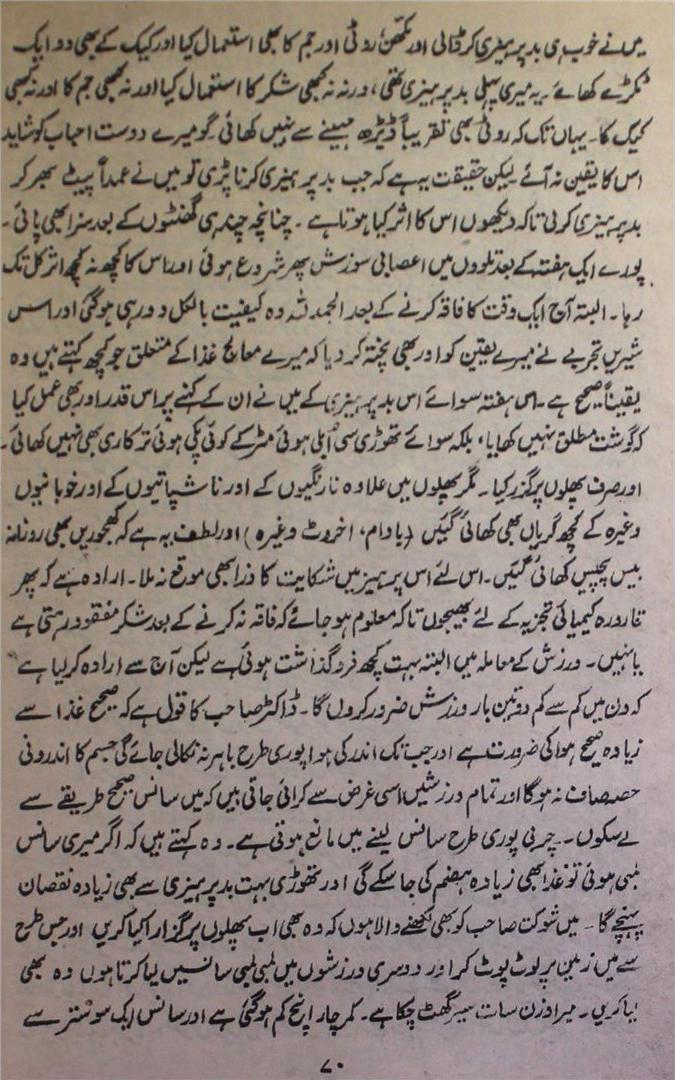 میں نے خوب ہی بد پرہیزی کر ڈالی اور مکھن روٹی اور جم کا بھی استعمال کیا اور کیک کے بھی دو ایک
ٹکڑے کھائے۔ یہ میری پہلی بد پرہیزی تھی، ورنہ نہ کبھی شکر کا استعمال کیا اور نہ کبھی جم کا اور نہ کبھی
کیک کا۔ یہاں تک کہ روٹی بھی تقریباً ڈیڑھ مہینے سے نہیں کھائی۔ گو میرے دوست احباب کو شاید
اس کا یقین نہ آئے لیکن حقیقت یہ ہے کہ جب بد پرہیزی کرنا پڑی تو میں نے عمداً پیٹ بھر کر
بد پرہیزی کر لی تاکہ دیکھوں اس کا اثر کیا ہوتا ہے۔ چنانچہ چند ہی گھنٹوں کے بعد سزا بھی پائی۔
پورے ایک ہفتہ کے بعد تلووں میں اعصابی سوزش پھر شروع ہوئی اور اس کا کچھ نہ کچھ اثر کل تک
رہا۔ البتہ آج ایک وقت کا فاقہ کرنے کے بعد الحمد للہ وہ کیفیت بالکل دور ہی ہو گئی اور اس
شیریں تجربے نے میرے یقین کو اور بھی پختہ کر دیا کہ میرے معالج غذا کے متعلق جو کچھ کہتے ہیں وہ
یقیناً صحیح ہے۔ اس ہفتہ سوائے اس بد پرہیزی کے میں نے ان کے کہنے پر اس قدر اور بھی عمل کیا
کہ گوشت مطلق نہیں کھایا، بلکہ سوائے تھوڑی سی اُبلی ہوئی مٹر کے کوئی پکی ہوئی ترکاری بھی نہیں کھائی۔
اور صرف پھلوں پر گزر کیا۔ مگر پھلوں میں علاوہ نارنگیوں کے اور ناشپاتیوں کے اور خوبانیوں
وغیرہ کے کچھ گریاں بھی کھائی گئیں (بادام، اخروٹ وغیرہ) اور لطف یہ ہے کہ کھجوریں بھی روزانہ
بیس پچیس کھائی گئیں۔ اس لئے اس پرہیز میں شکایت کا ذرا بھی موقع نہ ملا۔ ارادہ ہے کہ پھر
قارورہ کیمیائی تجزیہ کے لئے بھیجوں تاکہ معلوم ہو جائے کہ فاقہ نہ کرنے کے بعد شکر مفقود رہتی ہے
یا نہیں۔ ورزش کے معاملہ میں البتہ بہت کچھ فروگذاشت ہوئی ہے لیکن آج سے ارادہ کر لیا ہے
کہ دن میں کم سے کم دو تین بار ورزش ضرور کروں گا۔ ڈاکٹر صاحب کا قول ہے کہ صحیح غذا سے
زیادہ صحیح ہوا کی ضرورت ہے اور جب تک اندر کی ہوا پوری طرح باہر نہ نکالی جائے گی جسم کا اندرونی
حصہ صاف نہ ہو گا اور تمام ورزشیں اسی غرض سے کرائی جاتی ہیں کہ میں سانس صحیح طریقے سے
لے سکوں۔ چربی پوری طرح سانس لینے میں مانع ہوتی ہے۔ وہ کہتے ہیں کہ اگر میری سانس
لمبی ہوئی تو غذا بھی زیادہ ہضم کی جا سکے گی اور تھوڑی بہت بد پرہیزی سے بھی زیادہ نقصان
پہنچے گا۔ میں شوکت صاحب کو بھی لکھنے والا ہوں کہ وہ بھی اب پھلوں پر گزارا کیا کریں اور جس طرح
سے میں زمین پر لوٹ پوٹ کر اور دوسری ورزشوں میں لمبی لمبی سانسیں لیا کرتا ہوں وہ بھی
لیا کریں۔ میرا وزن سات سیر گھٹ چکا ہے۔ کمر چار انچ کم ہو گئی ہے اور سانس ایک سو ستر سے
۷۰